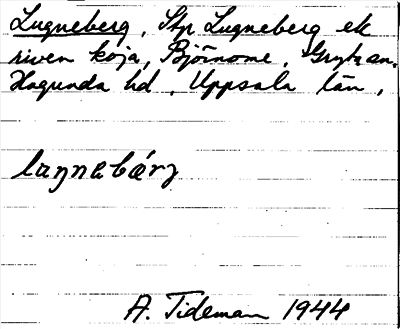 Lugneberg, Stp Lugneberg ek
riven koja, Björnome, Gryta sn.
Hagunda hd, Uppsala län,
laŋnəbærj
A. Tideman 1944